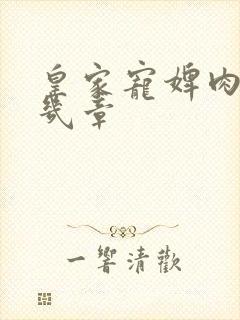 皇家寵婢肉
幾章
一響清歡